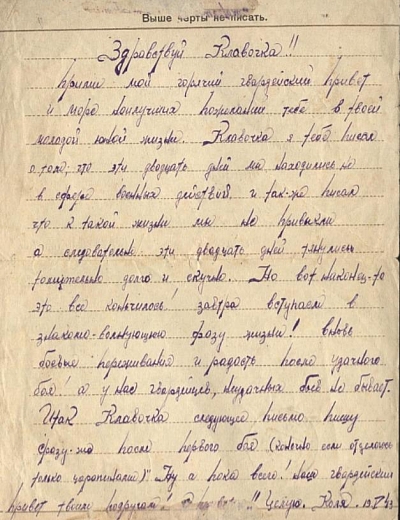 Выше черты не писать.
Здравствуй Клавочка!!
Прими мой горячий гвардейский привет
и море наилучших пожеланий тебе в твоей
молодой юной жизни. Клавочка я тебе писал
о том, что эти двадцать дней мы находились не
в сфере военных действий, и так-же писал
что к такой жизни мы не привыкли
а следовательно эти двадцать дней тянулись
томительно долго и скучно. Но вот наконец-то
это все кончилось! завтра вступаем в
знакомо-волнующую фразу жизни! вновь
боевые переживания и радость после удачного
боя! а у нас гвардейцев, неудачных боев не бывает.
Итак Клавочка следующее письмо пишу
сразу-же после первого боя (конечно если отделаюсь
только царапинами)" Ну а пока всего! наш гвардейский
привет твоим подругам! !! Целую. Коля.